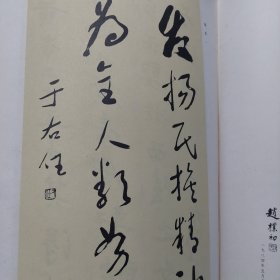 发扬民族精神
为全人类努
于右任
趙樸初